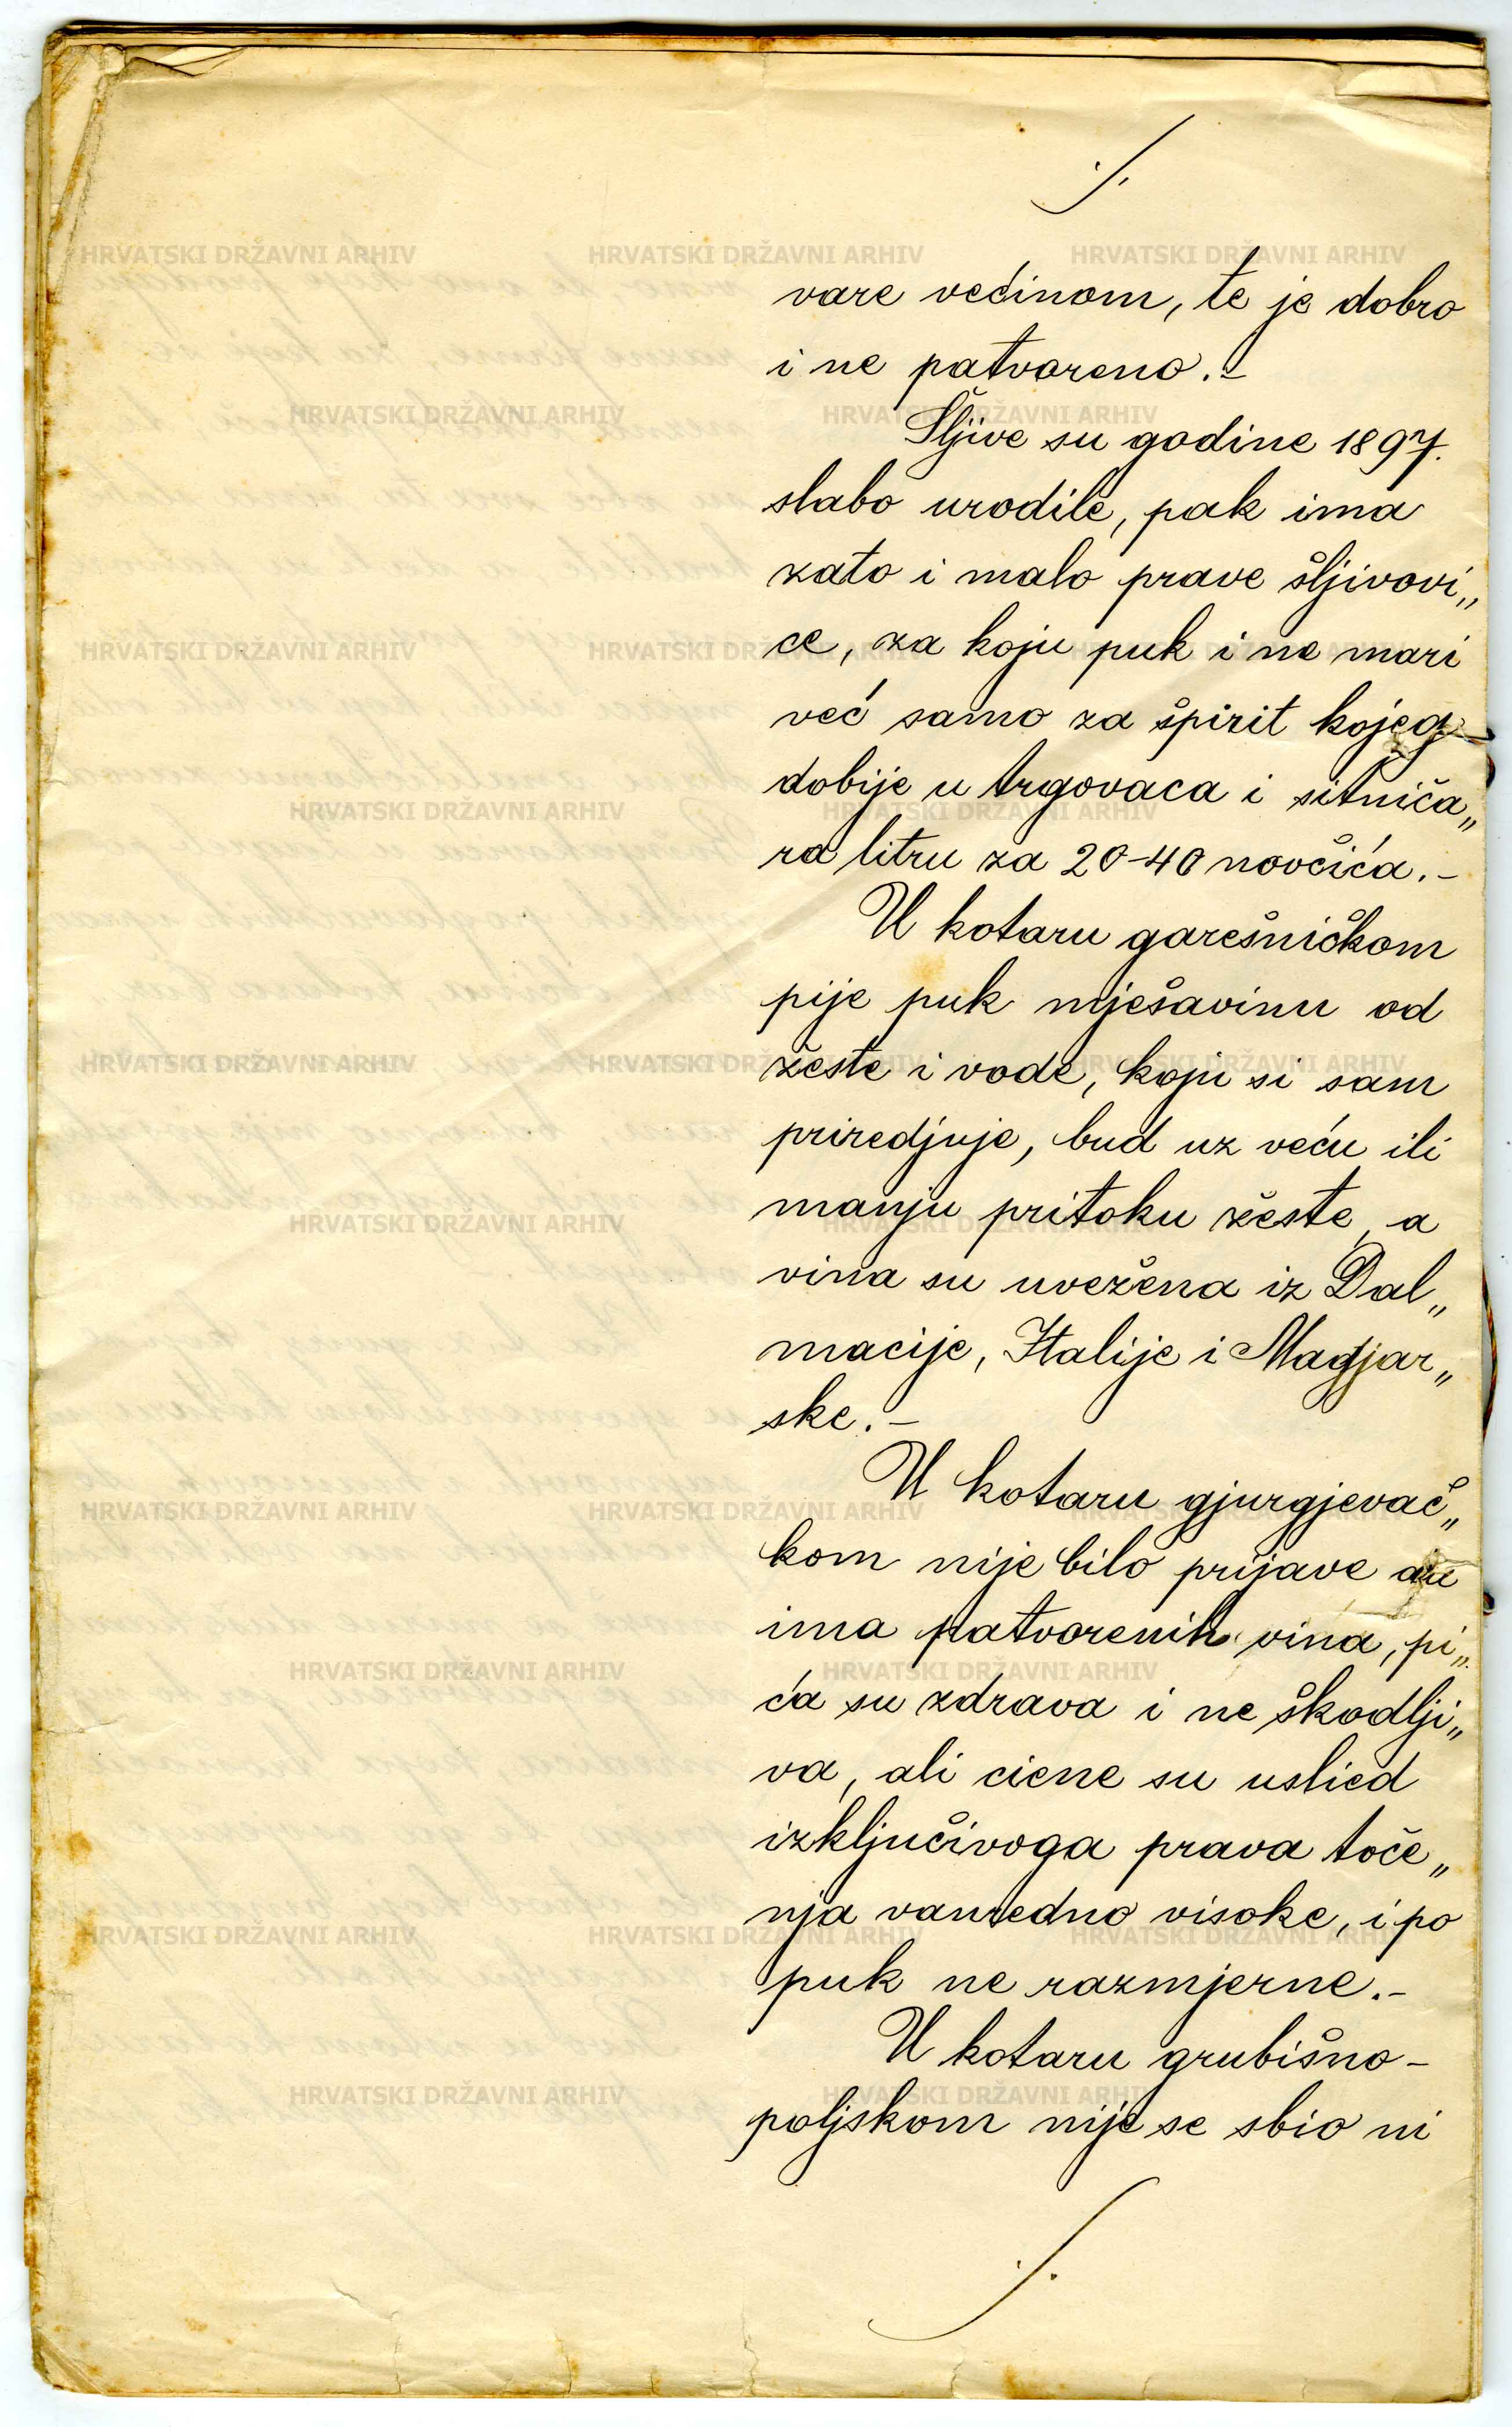 ./.
vare većinom, te je dobro
i ne patvoreno.-
Šljive su godine 1897.
slabo urodile, pak ima
zato i malo prave šljivovi„
ce, za koju puk i ne mari
već samo za špirit kojeg
dobije u trgovaca i sitniča„
ra litru za 20-40 novčića.-
U kotaru garešničkom
pije puk mješavinu od
žeste i vode, koju si sam
priredjuje, bud uz veću ili
manju pritoku žeste, a
vina su uvežena iz Dal„
macije, Italije i Madjar„
ske.-
U kotaru gjurgjevač„
kom nije bilo prijave da
ima patvorenih vina, pi„
ća su zdrava i ne škodlji„
va, ali ciene su uslied
izključivoga prava toče„
nja vanredno visoke, i po
puk ne razmjerne.-
U kotaru grubišno-
poljskom nije se sbio ni
./.
HRVATSKI DRŽAVNI ARHIV